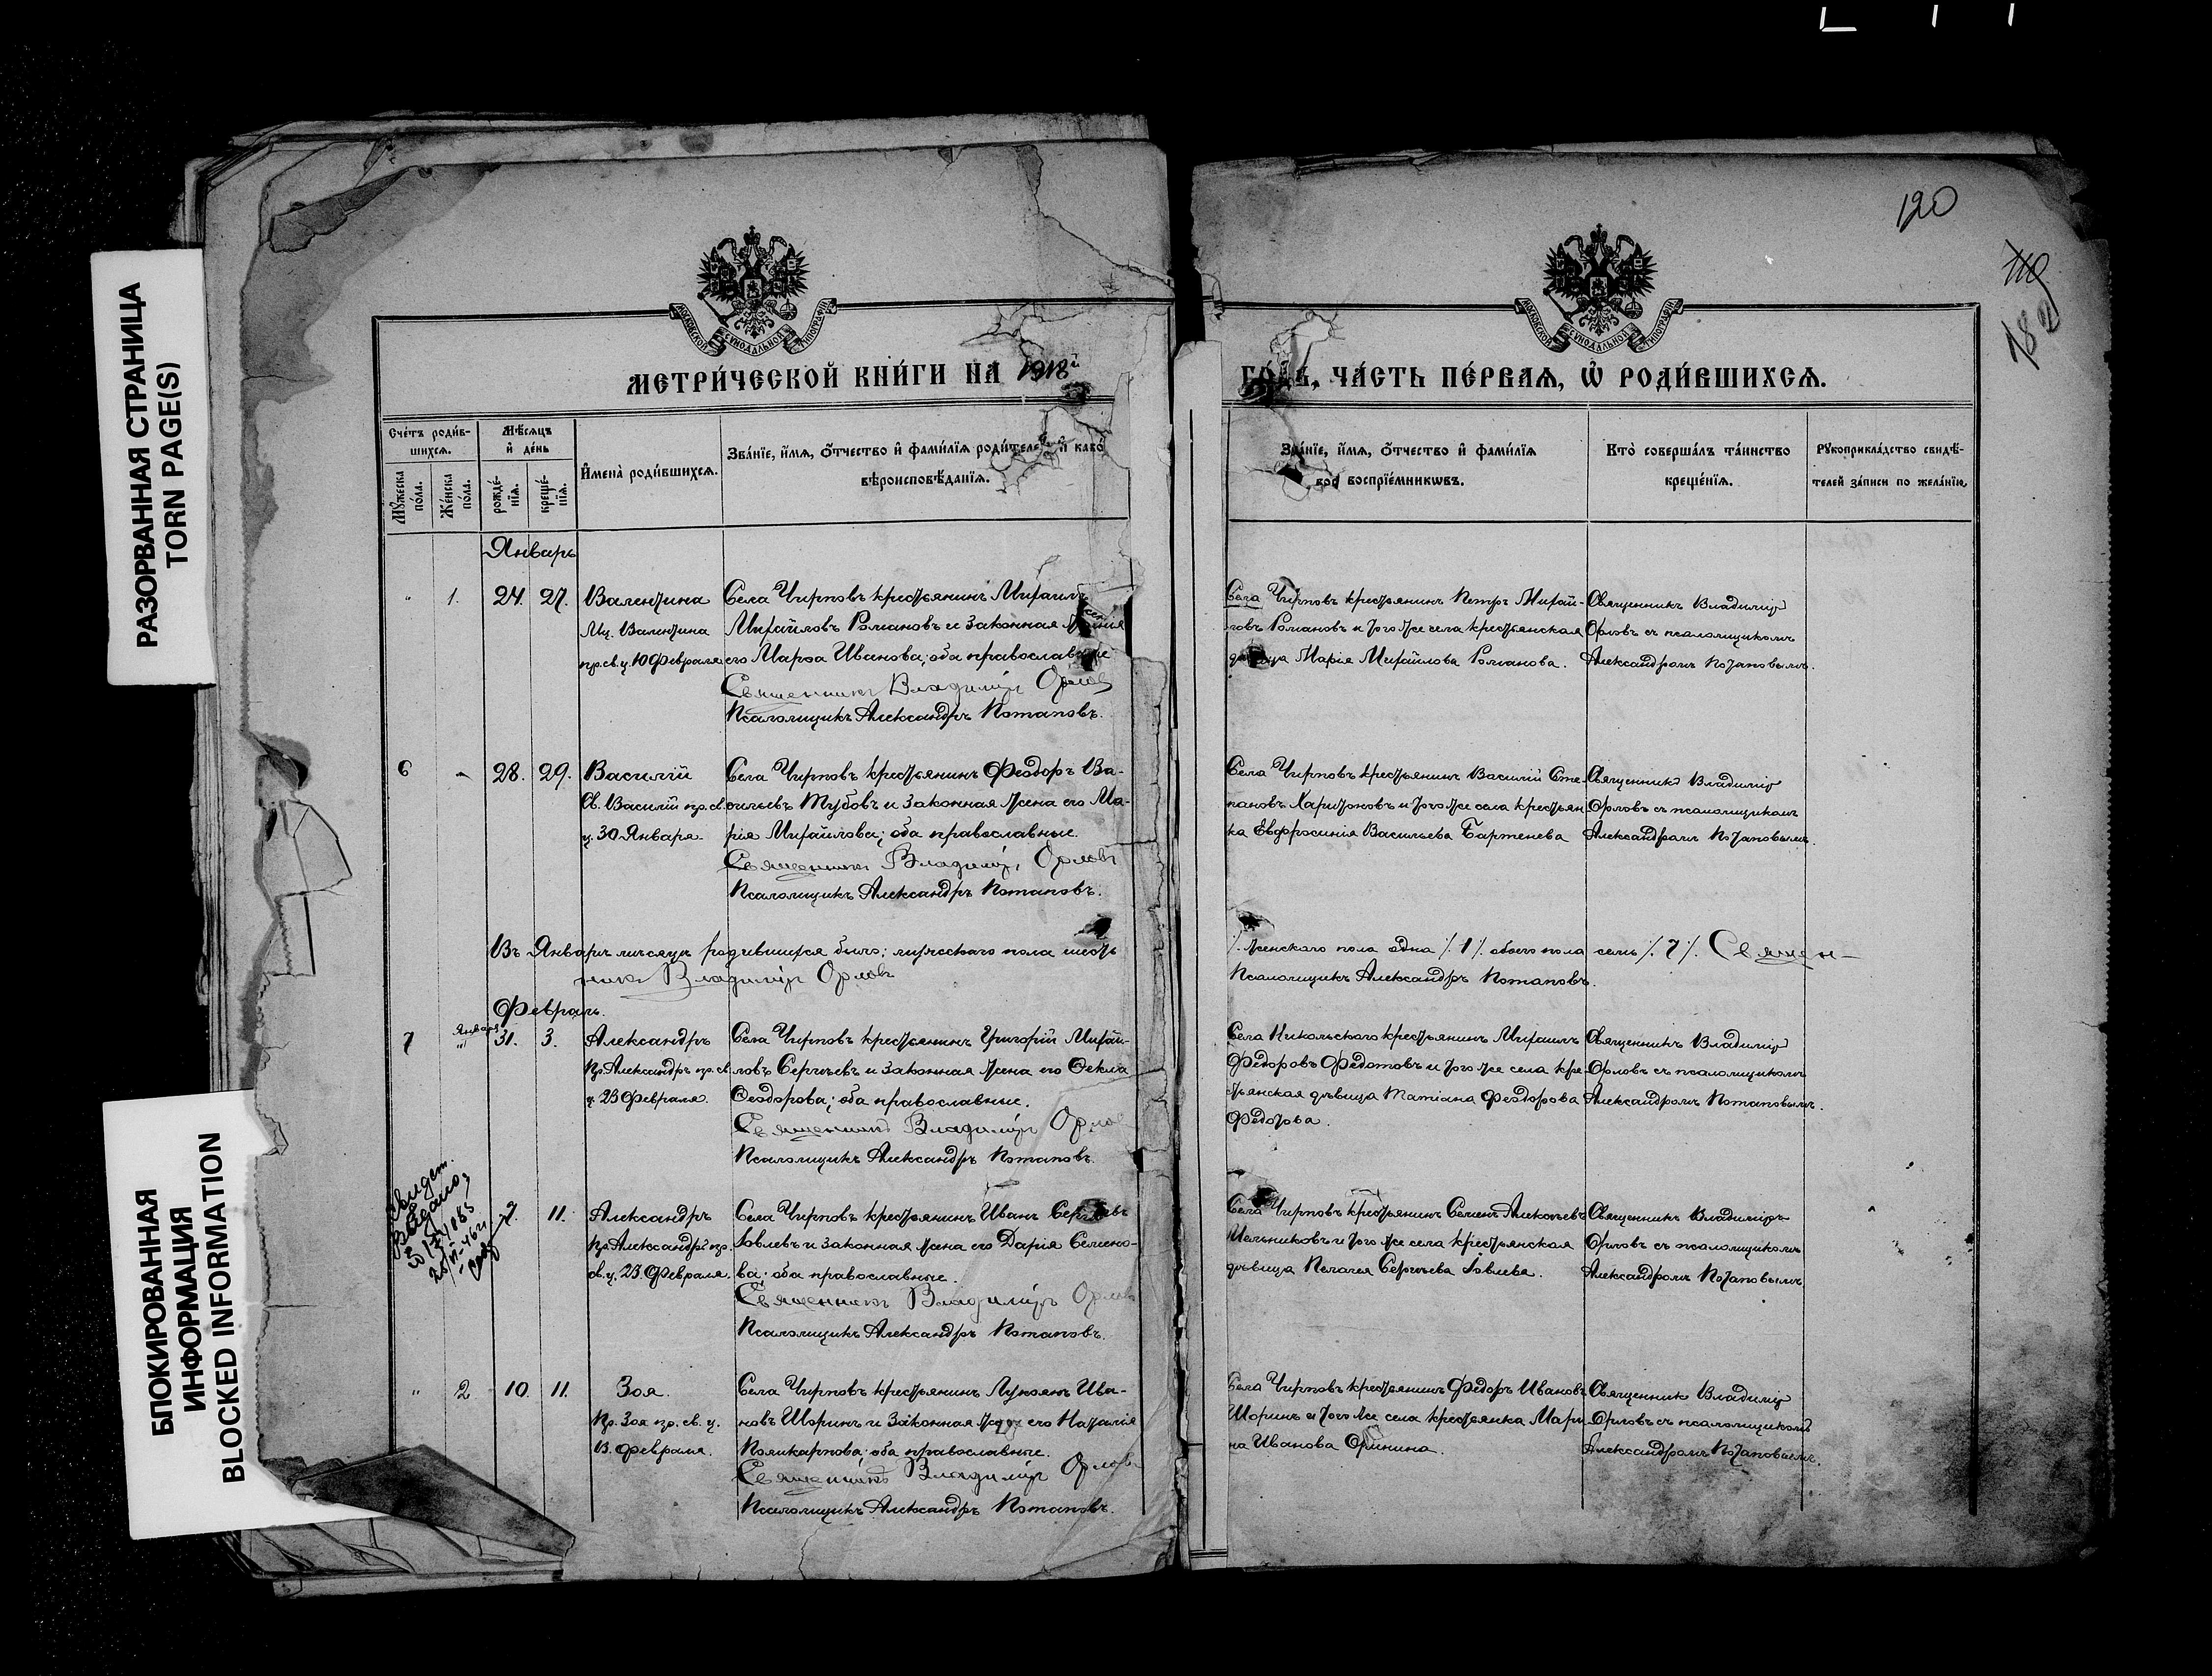 120
110
182
РАЗОРВАННАЯ СТРАНИЦА
TORN PAGE(S)
МОСКОВСКОЙ СѴНОДАЛЬНОЙ ТИПОГРАФІИ
МОСКОВСКОЙ СѴНОДАЛЬНОЙ ТИПОГРАФІИ
МЕТРИ́ЧЕСКОЙ КНИ́ГИ НА 1918й
ГО́ДЪ, ЧА́СТЬ ПЕ́РВАЯ, Ѡ҆ РОДИ́ВШИХСЯ.
Сче́тъ роди́в-
шихся.
Мꙋ́жеска по́ла.
Же́нска по́ла.
Мѣ́сяцъ
и҆ де́нь
рожде́-
нїя.
креще́-
нїя.
И҆мена̀ роди́вшихся.
Зва́нїе, и҆́мя, ѻ҆́тчество и҆ фами́лїя роди́телей, и҆ како́
вѣроисповѣ́данїя.
Зва́нїе, и҆́мя, ѻ҆́тчество и҆ фами́лїя
воспрїе́мникѡвъ.
Кто̀ соверша́лъ та́инство
креще́нїя.
Рꙋкоприкла́дство свидѣ́-
телей за́писи по жела́нїю.
Январь
" 1. 24. 27.
Валентина
Мц. Валентина
пр. св. ц. 10 Февраля
Села Чирповъ крестьянинъ Михаилъ
Михайловъ Романовъ и законная жена
его Марѳа Иванова; оба православные
Священникъ Владиміръ Орловъ
Псаломщикъ Александръ Потаповъ.
Села Чирповъ крестьянинъ Петръ Михай-
ловъ Романовъ и того же села крестьянская
дѣвица Марія Михайлова Романова.
Священникъ Владиміръ
Орловъ съ псаломщикомъ
Александромъ Потаповымъ.
6 " 28. 29.
Василій
Св. Василій пр. св.
ц. 30 Января.
Села Чирповъ крестьянинъ Феодоръ Ва-
сильевъ Тубовъ и законная жена его Ма-
рія Михайлова; оба православные.
Священникъ Владиміръ Орловъ
Псаломщикъ Александръ Потаповъ.
Села Чирповъ крестьянинъ Василій Сте-
пановъ Харитоновъ и того же села крестьян
ка Евфросинія Васильева Бартенева
Священникъ Владиміръ
Орловъ съ псаломщикомъ
Александромъ Потаповымъ.
Въ Январѣ мѣсяцѣ родившихся было: мужескаго пола шесть
/. женскаго пола одна /. 1 /. обоего пола семь /. 7 /. Священ-
никъ Владиміръ Орловъ
Псаломщикъ Александръ Потаповъ.
Февраль.
7 " Января 31. 3.
Александръ
Пр. Александръ пр. св.
ц. 23 Февраля.
Села Чирповъ крестьянинъ Григорій Михай-
ловъ Сергѣевъ и законная жена его Ѳекла
Ѳеодорова; оба православные.
Священникъ Владиміръ Орловъ
Псаломщикъ Александръ Потаповъ.
Села Никольскаго крестьянинъ Михаилъ
Федоровъ Федотовъ и того же села кре-
стьянская дѣвица Татіана Феодорова
Федотова.
Священникъ Владиміръ
Орловъ съ псаломщикомъ
Александромъ Потаповымъ.
Свидет.
Выдано
7. 11.
Александръ
Пр. Александръ пр.
св. ц. 23. Февраля.
Села Чирповъ крестьянинъ Иванъ Сергѣевъ
Іовлевъ и законная жена его Дарія Семено-
ва; оба православные.
Священникъ Владиміръ Орловъ
Псаломщикъ Александръ Потаповъ.
Села Чирповъ крестьянинъ Семенъ Алексѣевъ
Мельниковъ и того же села крестьянская
дѣвица Пелагея Сергѣева Іовлева.
Священникъ Владиміръ
Орловъ съ псаломщикомъ
Александромъ Потаповымъ
БЛОКИРОВАННАЯ
ИНФОРМАЦИЯ
BLOCKED INFORMATION
" 2 10. 11.
Зоя.
Пр. Зоя пр. св. ц.
13. февраля.
Села Чирповъ крестьянинъ Лукоянъ Ива-
новъ Шоринъ и законная жена его Наталія
Поликарпова; оба православные.
Священникъ Владиміръ Орловъ
Псаломщикъ Александръ Потаповъ.
Села Чирповъ крестьянинъ Федоръ Ивановъ
Шоринъ и того же села крестьянка Мари-
на Иванова
Священникъ Владиміръ
Орловъ съ псаломщикомъ
Александромъ Потаповымъ.